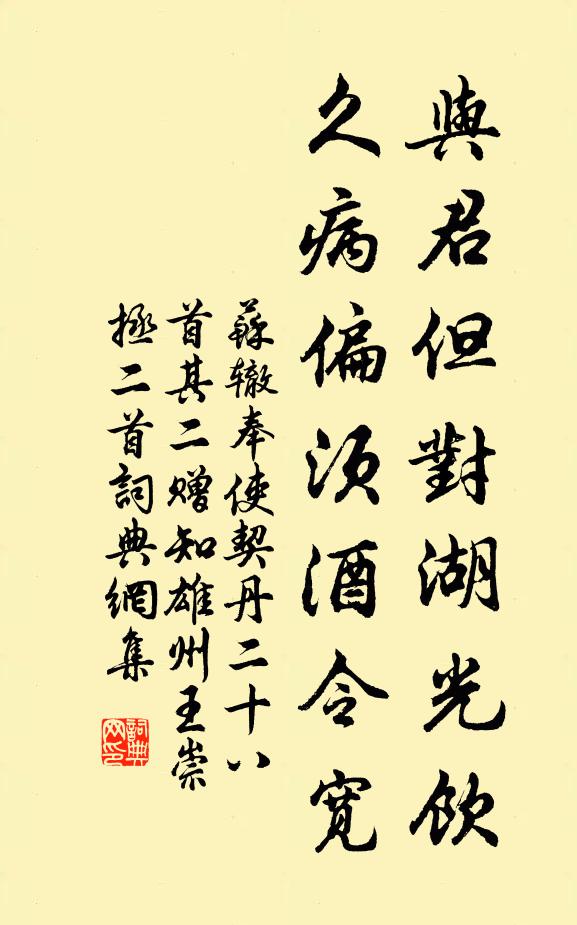 與君但對湖光飲
久病偏須酒令寬
蘇轍奉使契丹二十八
首其二贈知雄州王崇
拯二首詞典網集
詞典網印